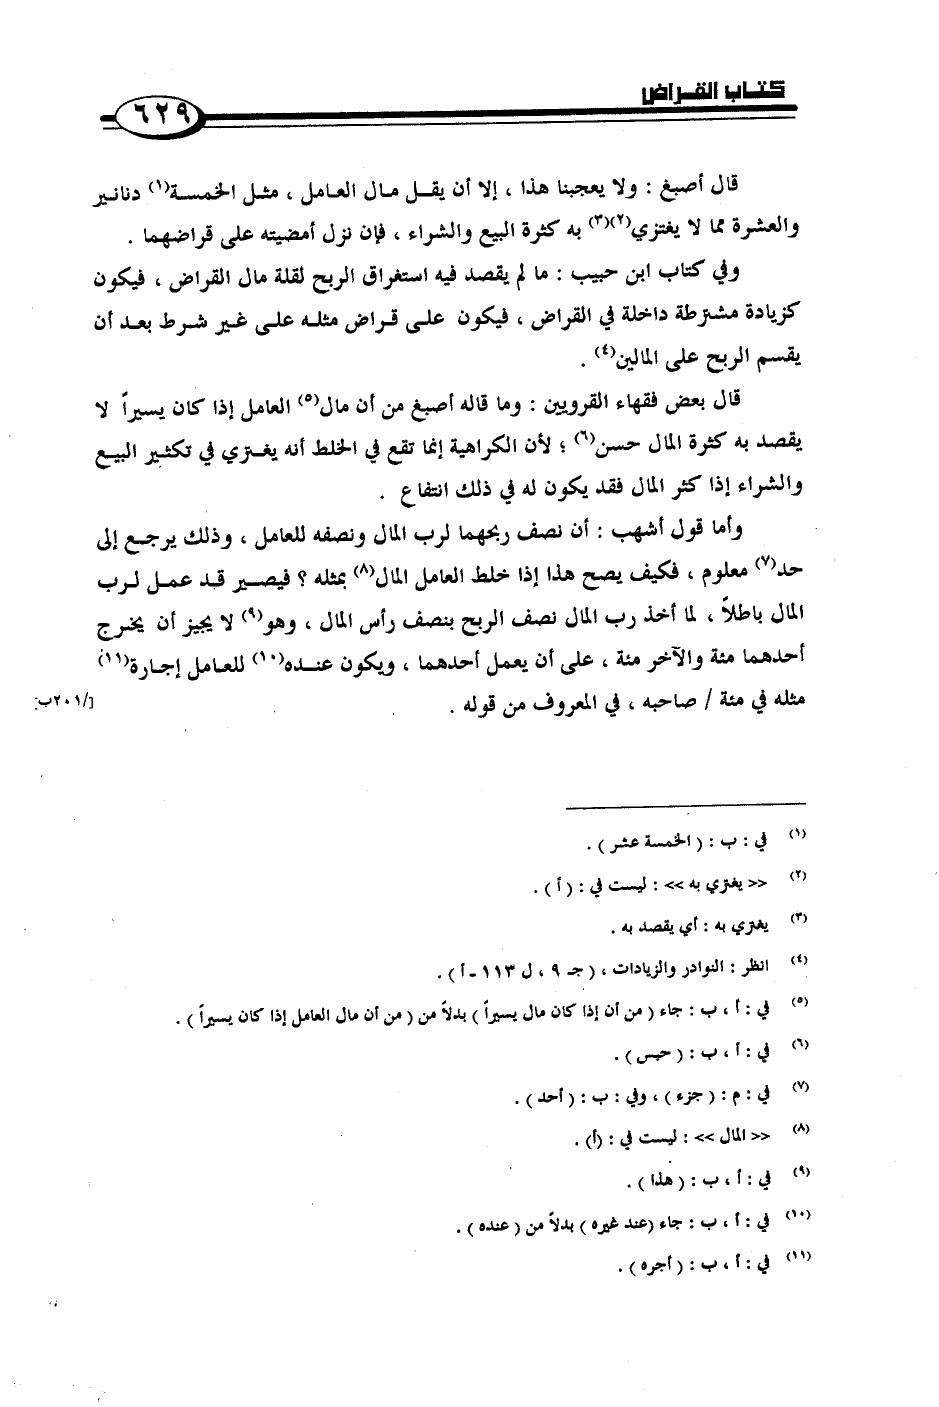 كتاب القراض
٦٢٩
قال أصبغ : ولا يعجبنا هذا ، إلا أن يقل مال العامل ، مثل الخمسة(١) دنانير
والعشرة مما لا يغتزي(٢)(٣) به كثرة البيع والشراء ، فإن نزل أمضيته على قراضهما .
وفي كتاب ابن حبيب : ما لم يقصد فيه استغراق الربح لقلة مال القراض ، فيكون
كزيادة مشترطة داخلة في القراض ، فيكون على قراض مثله على غير شرط بعد أن
يقسم الربح على المالين(٤) .
قال بعض فقهاء القرويين : وما قاله أصبغ من أن مال(٥) العامل إذا كان يسيراً لا
يقصد به كثرة المال حسن(٦) ؛ لأن الكراهية إنما تقع في الخلط أنه يغتزي في تكثير البيع
والشراء إذا كثر المال فقد يكون له في ذلك انتفاع .
وأما قول أشهب : أن نصف ربحهما لرب المال ونصفه للعامل ، وذلك يرجع إلى
حد(٧) معلوم ، فكيف يصح هذا إذا خلط العامل المال(٨) بمثله ؟ فيصير قد عمل لرب
المال باطلاً ، لما أخذ رب المال نصف الربح بنصف رأس المال ، وهو(٩) لا يجيز أن يخرج
أحدهما مئة والآخر مئة ، على أن يعمل أحدهما ، ويكون عنده(١٠) للعامل إجارة(١١)
مثله في مئة / صاحبه ، في المعروف من قوله .
[/٢٠١ب]
(١) في : ب : ( الخمسة عشر ) .
(٢) << يغتزي به >> : ليست في : ( أ ) .
(٣) يغتزي به : أي يقصد به .
(٤) انظر : النوادر والزيادات ، ( جـ ٩ ، ل ١١٣ - أ ) .
(٥) في : أ ، ب : جاء ( من أن إذا كان مال يسيراً ) بدلاً من ( من أن مال العامل إذا كان يسيراً ) .
(٦) في : أ ، ب : ( حبس ) .
(٧) في : م : ( جزء ) ، وفي : ب : ( أحد ) .
(٨) << المال >> : ليست في : (أ) .
(٩) في : أ ، ب : ( هذا ) .
(١٠) في : أ ، ب : جاء (عند غيره ) بدلاً من ( عنده ) .
(١١) في : أ ، ب : ( أجره ) .